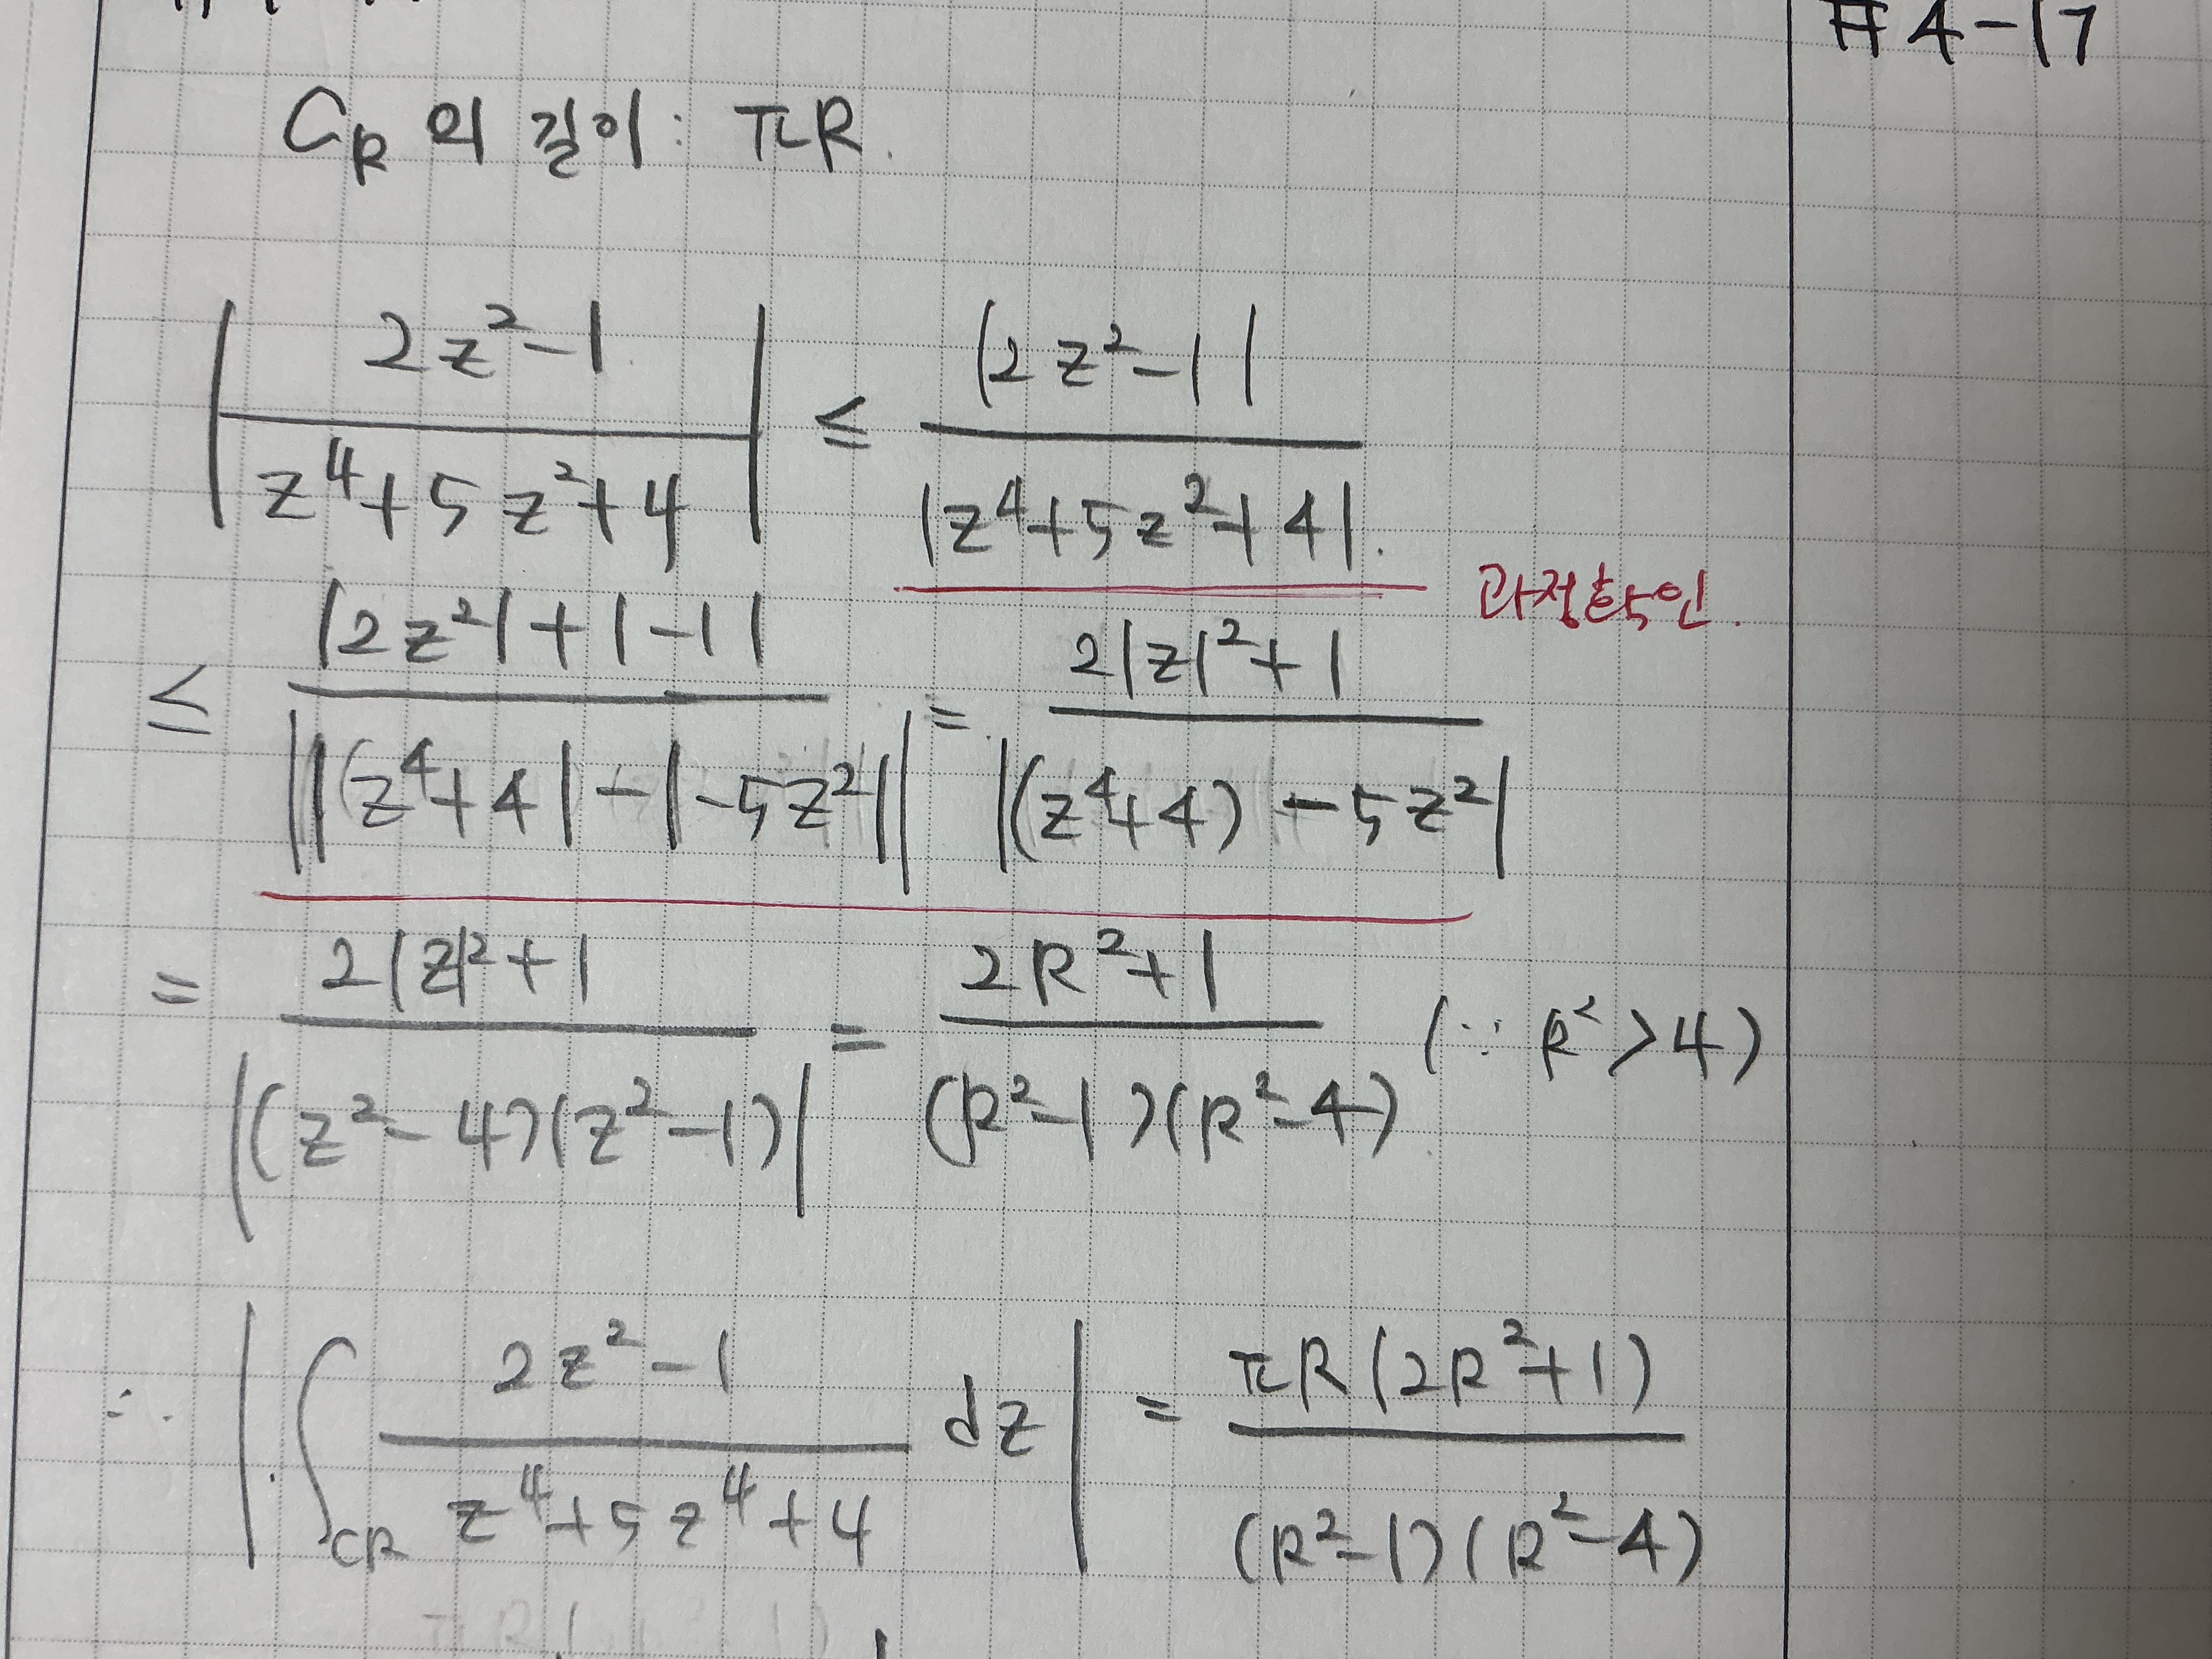 #4-17
C_R 의 길이 : πR.
| (2z²-1)/(z⁴+5z²+4) | ≤ |2z²-1| / |z⁴+5z²+4|.
과정확인.
≤ (|2z²|+|-1|) / ||(z⁴+4|-|-5z²|| = (2|z|²+1) / |(z⁴+4)-5z²|
= (2|z|²+1) / |(z²-4)(z²-1)| = (2R²+1) / (R²-1)(R²-4) (∵ R²>4)
∴ | ∫_CR (2z²-1)/(z⁴+5z⁴+4) dz | = πR(2R²+1) / (R²-1)(R²-4)